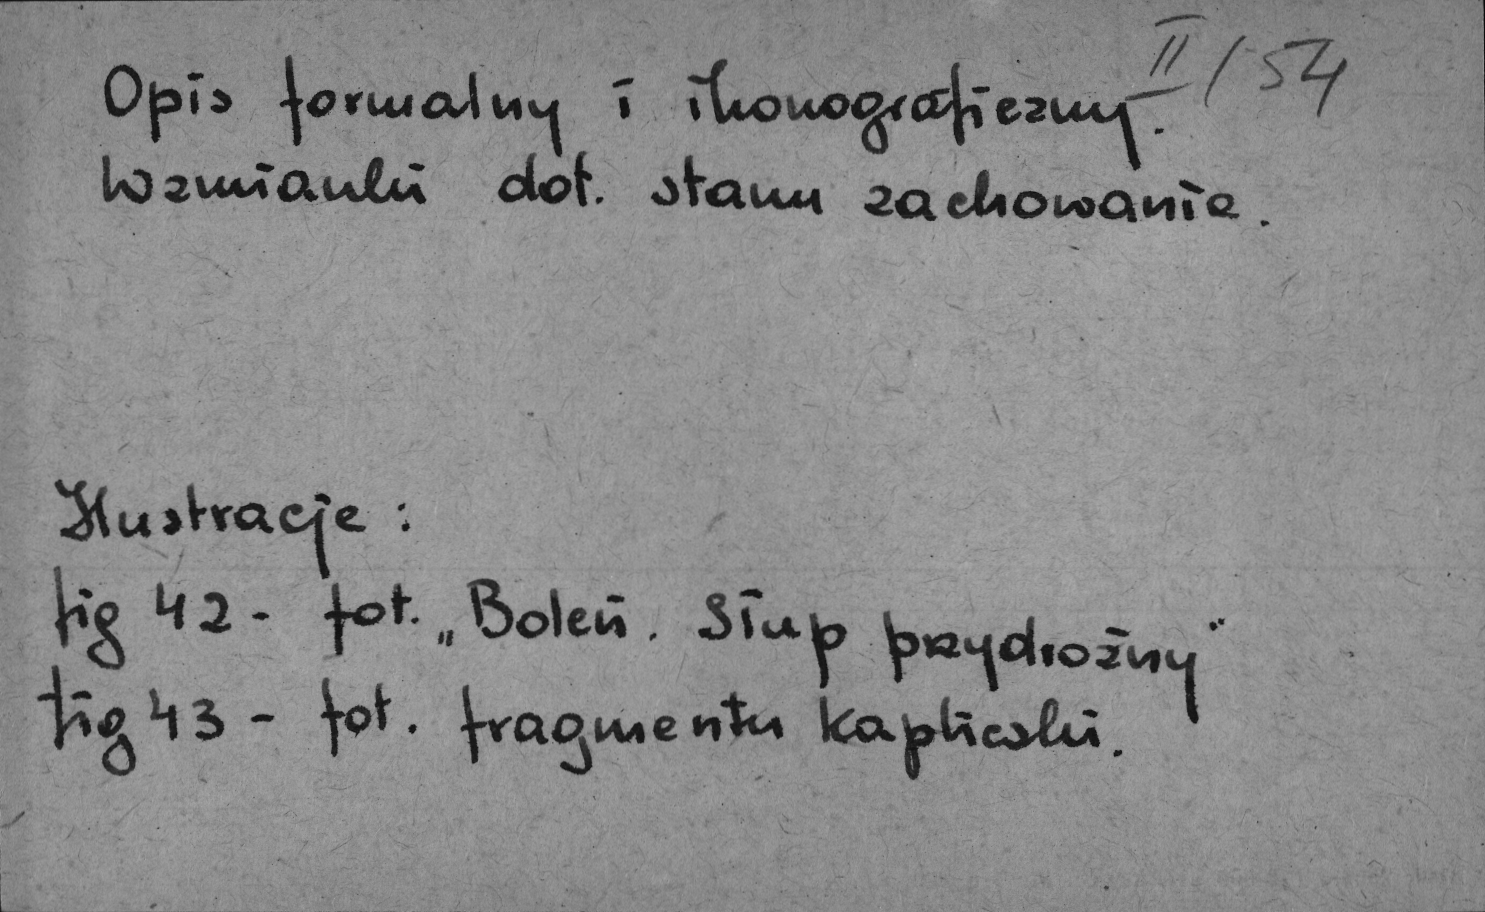 II/54
Opis formalny i ikonograficzny.
Wzmianki dot. stanu zachowania.
Ilustracje:
fig 42 - fot. „Boleń. Słup przydrożny"
fig 43 - fot. fragmentu kapliczki.